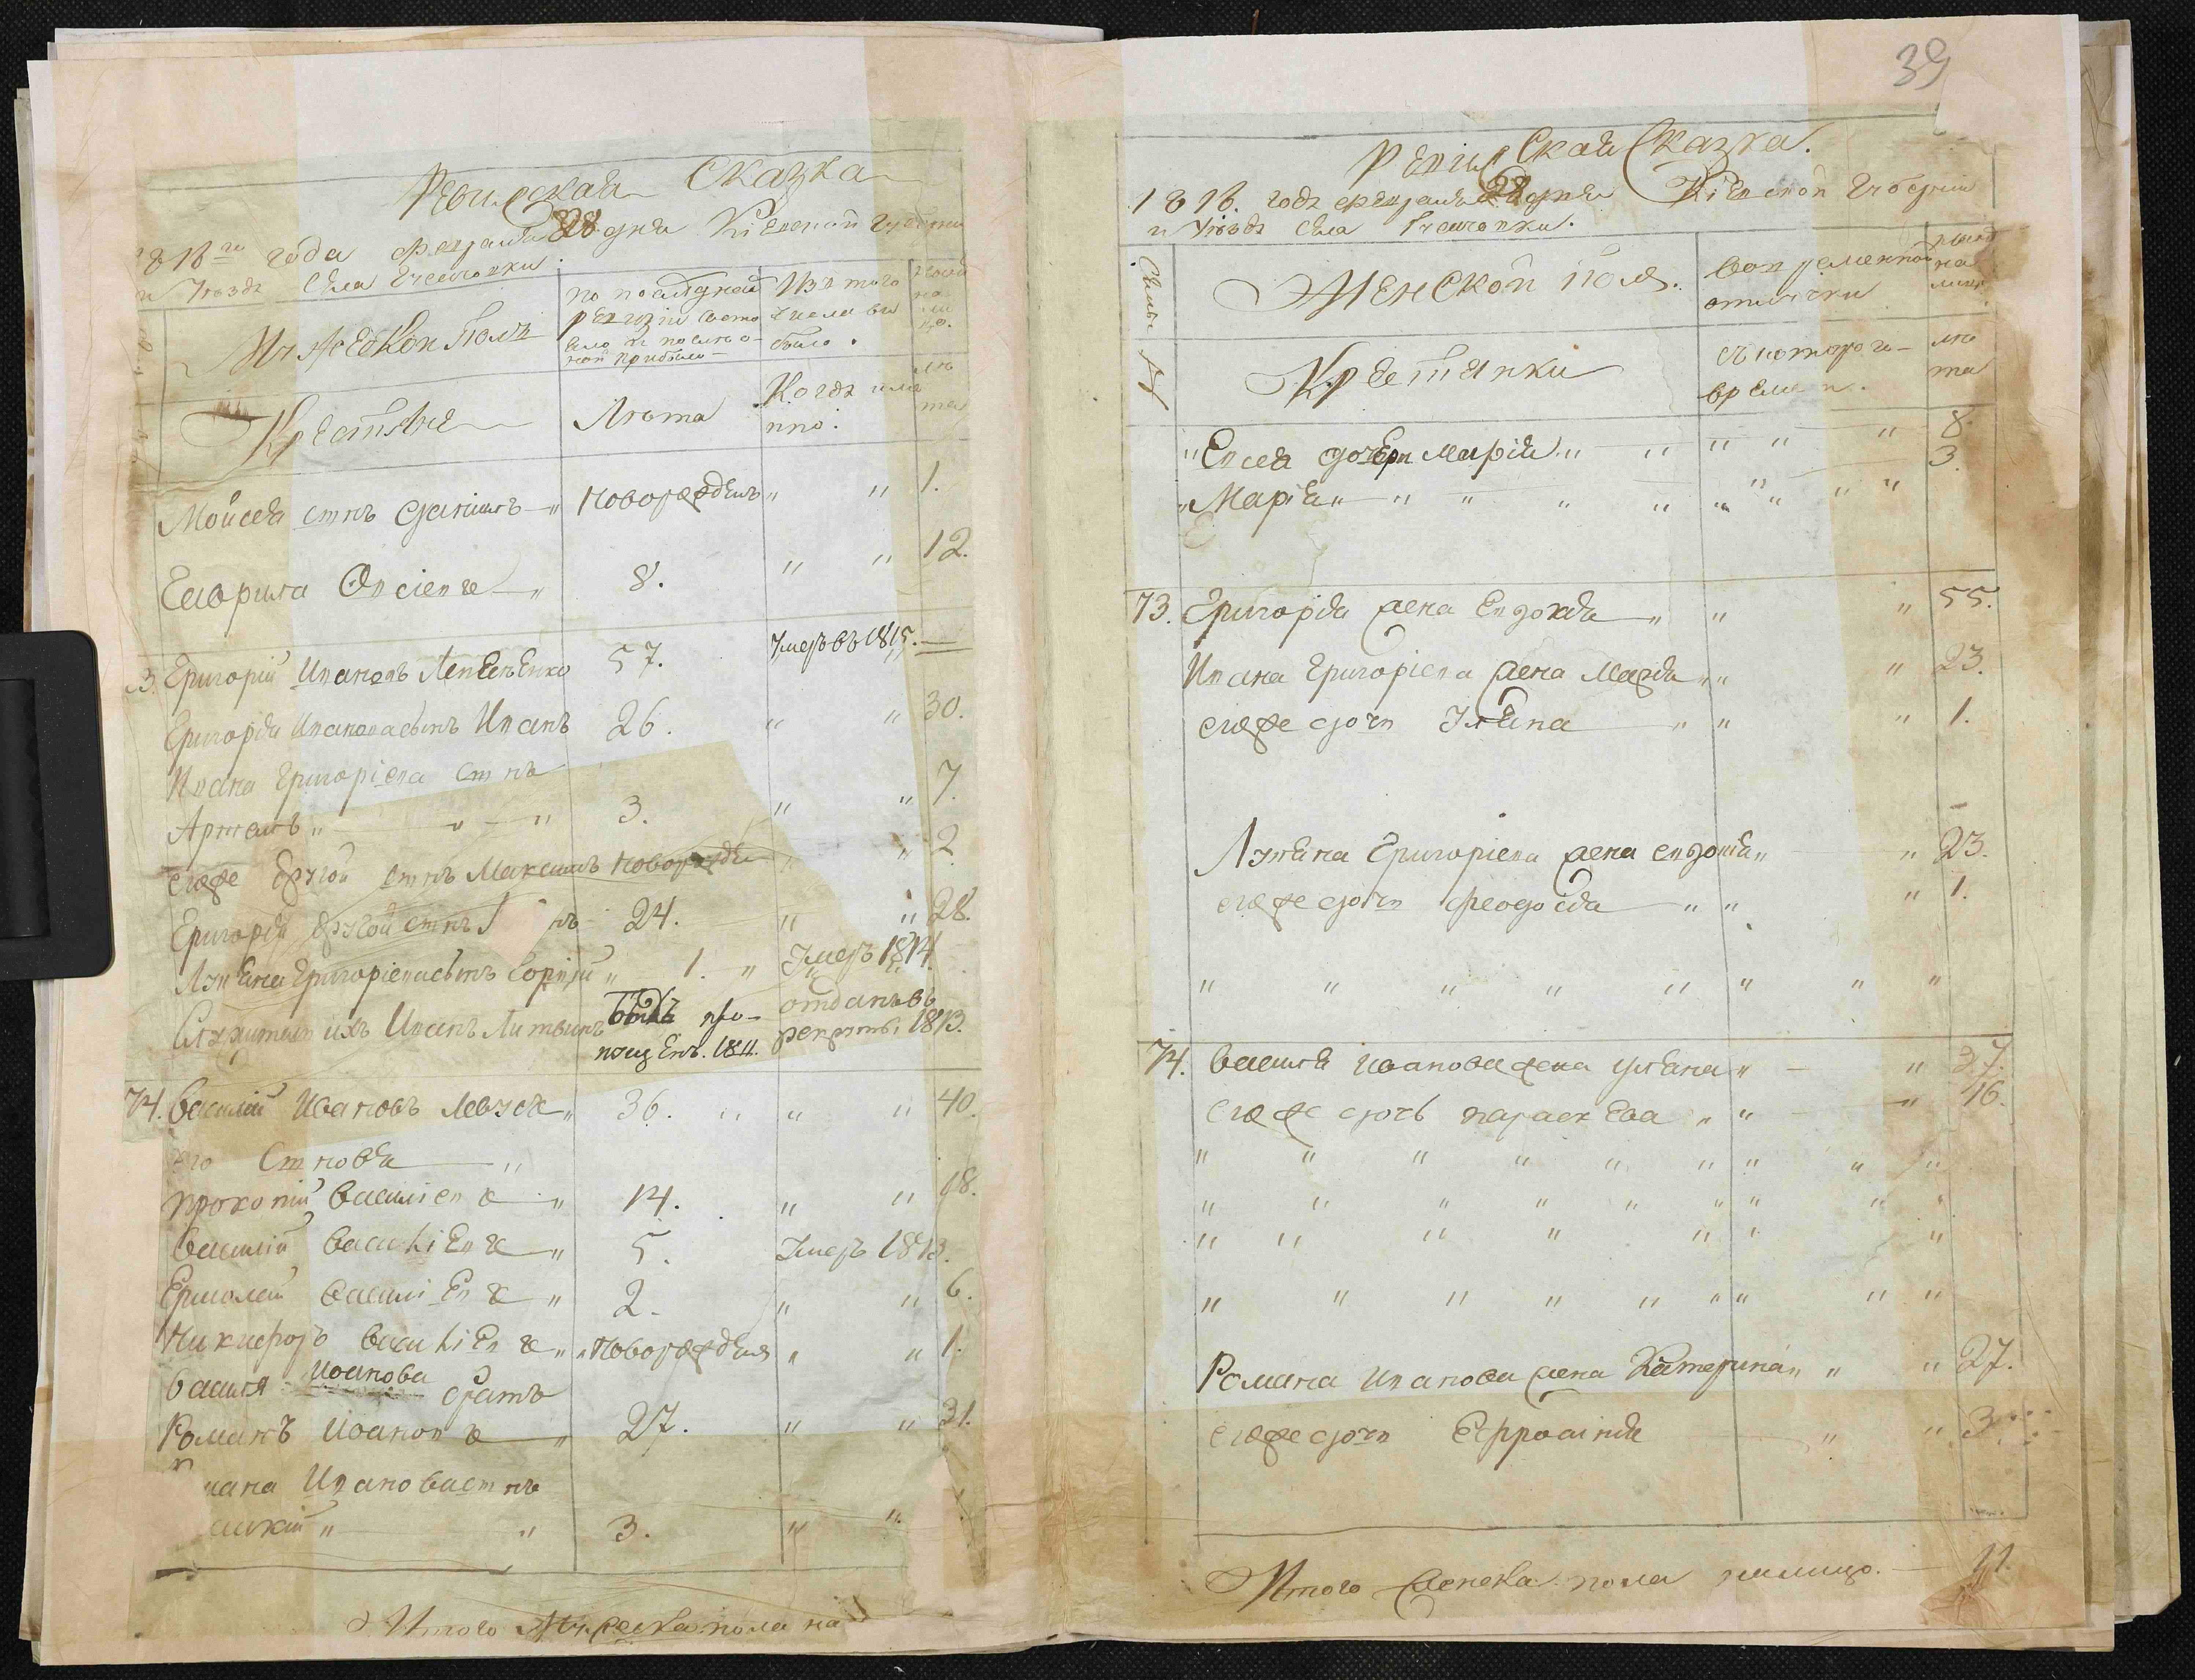 Ревизская Сказка
1816го года февраля 28 дня Кіевской губерніи
и Уезда Села
Мужеской Полъ
по последней ревизіи состояло и после оной прибыло
Изъ того числа выбыло
ныне на лицо.
Крестяне
Лѣта
Когда именно.
лѣта
Мойсея сынъ Данило " новорожденъ " " 1.
Гаврила " 8. " " 12.
3. Григорій Ивановъ 57. Умеръ въ 1815.
Григорія Иванова сынъ Иванъ 26. " " 30.
Ивана Григоріева сынъ
Артемъ " " " 3. " " 7.
егоже другой сынъ Максимъ новорожде " " 2
Григорія другой сынъ 24. " " 28.
Григоріева сынъ " 1. " Умеръ 1814.
Служитель ихъ Иванъ Литвинъ
бывъ пропущенъ. 1811.
отданъ въ рекруты 1813.
74. Василій Ивановъ " 36. " " " 40.
его Сыновья "
прокопій Василіевъ " 14. " " 18.
Василій Василіевъ " 5. Умеръ 1813.
Ермолай Василіевъ " 2. " " 6.
Никифоръ Василіевъ " новорожденъ " " 1.
Василя Иванова братъ
Романъ Ивановъ " 27. " " 31.
мана Иванова сынъ
" " 3. " "
Итого Мужеска пола на
39
Ревизская Сказка.
1816. года февраля 28 дня Кіевской Губерніи
и Уезда Села
Семьи
Женской Полъ.
Во временной отлучки
ныне на лицо
№
Крестянки
Съ которого времени.
лѣта
" Евсея дочери Марія " " " " " 8.
" Марія " " " " " " " " " 3.
73. Григорія жена Евдокія " " " 55.
Ивана Григоріева жена Марія " " " 23.
егоже дочь Уляна " " " 1.
Григоріева жена Евдокія " " 23.
егоже дочь Феодосія " " " 1.
" " " " " " " "
74. Василя Иванова жена Уляна " " 37.
Егоже дочь параскева " " " 16.
" " " " " " " " "
" " " " " " " " "
" " " " " " "
" " " " " " " " "
Романа Иванова жена Катерина " " " 27.
егоже дочь Ефросинія " " 3
Итого женска пола налицо. 11.